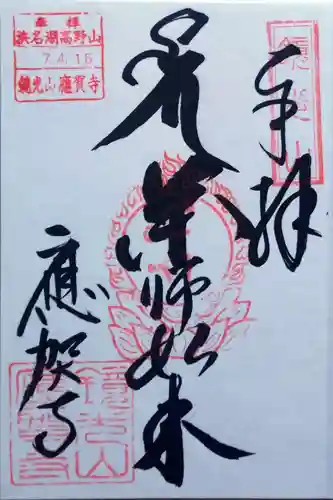 奉拝
鏡光山
薬師如来
應賀寺
奉拝
浜名湖高野山
7.4.16
鏡光山應賀寺